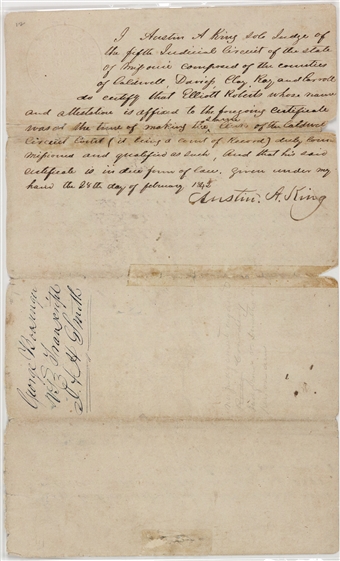 I Austin A King sole Judge of
the fifth Judicial Circuit of the state
of Missouri composed of the counties
of Caldwell Daviess Clay Ray and Carroll
do certify that Elliott Roberts whose name
and attestation is affixed to the foregoing certificate
was at the time of making the same clerk of the Caldwell
Circuit Court (it being a court of Record) duly
and qualified as such, And that his said
certificate is in due form of Law. given under my
hand the 24th day of february
Austin. A. King
George
Transcript
Smith